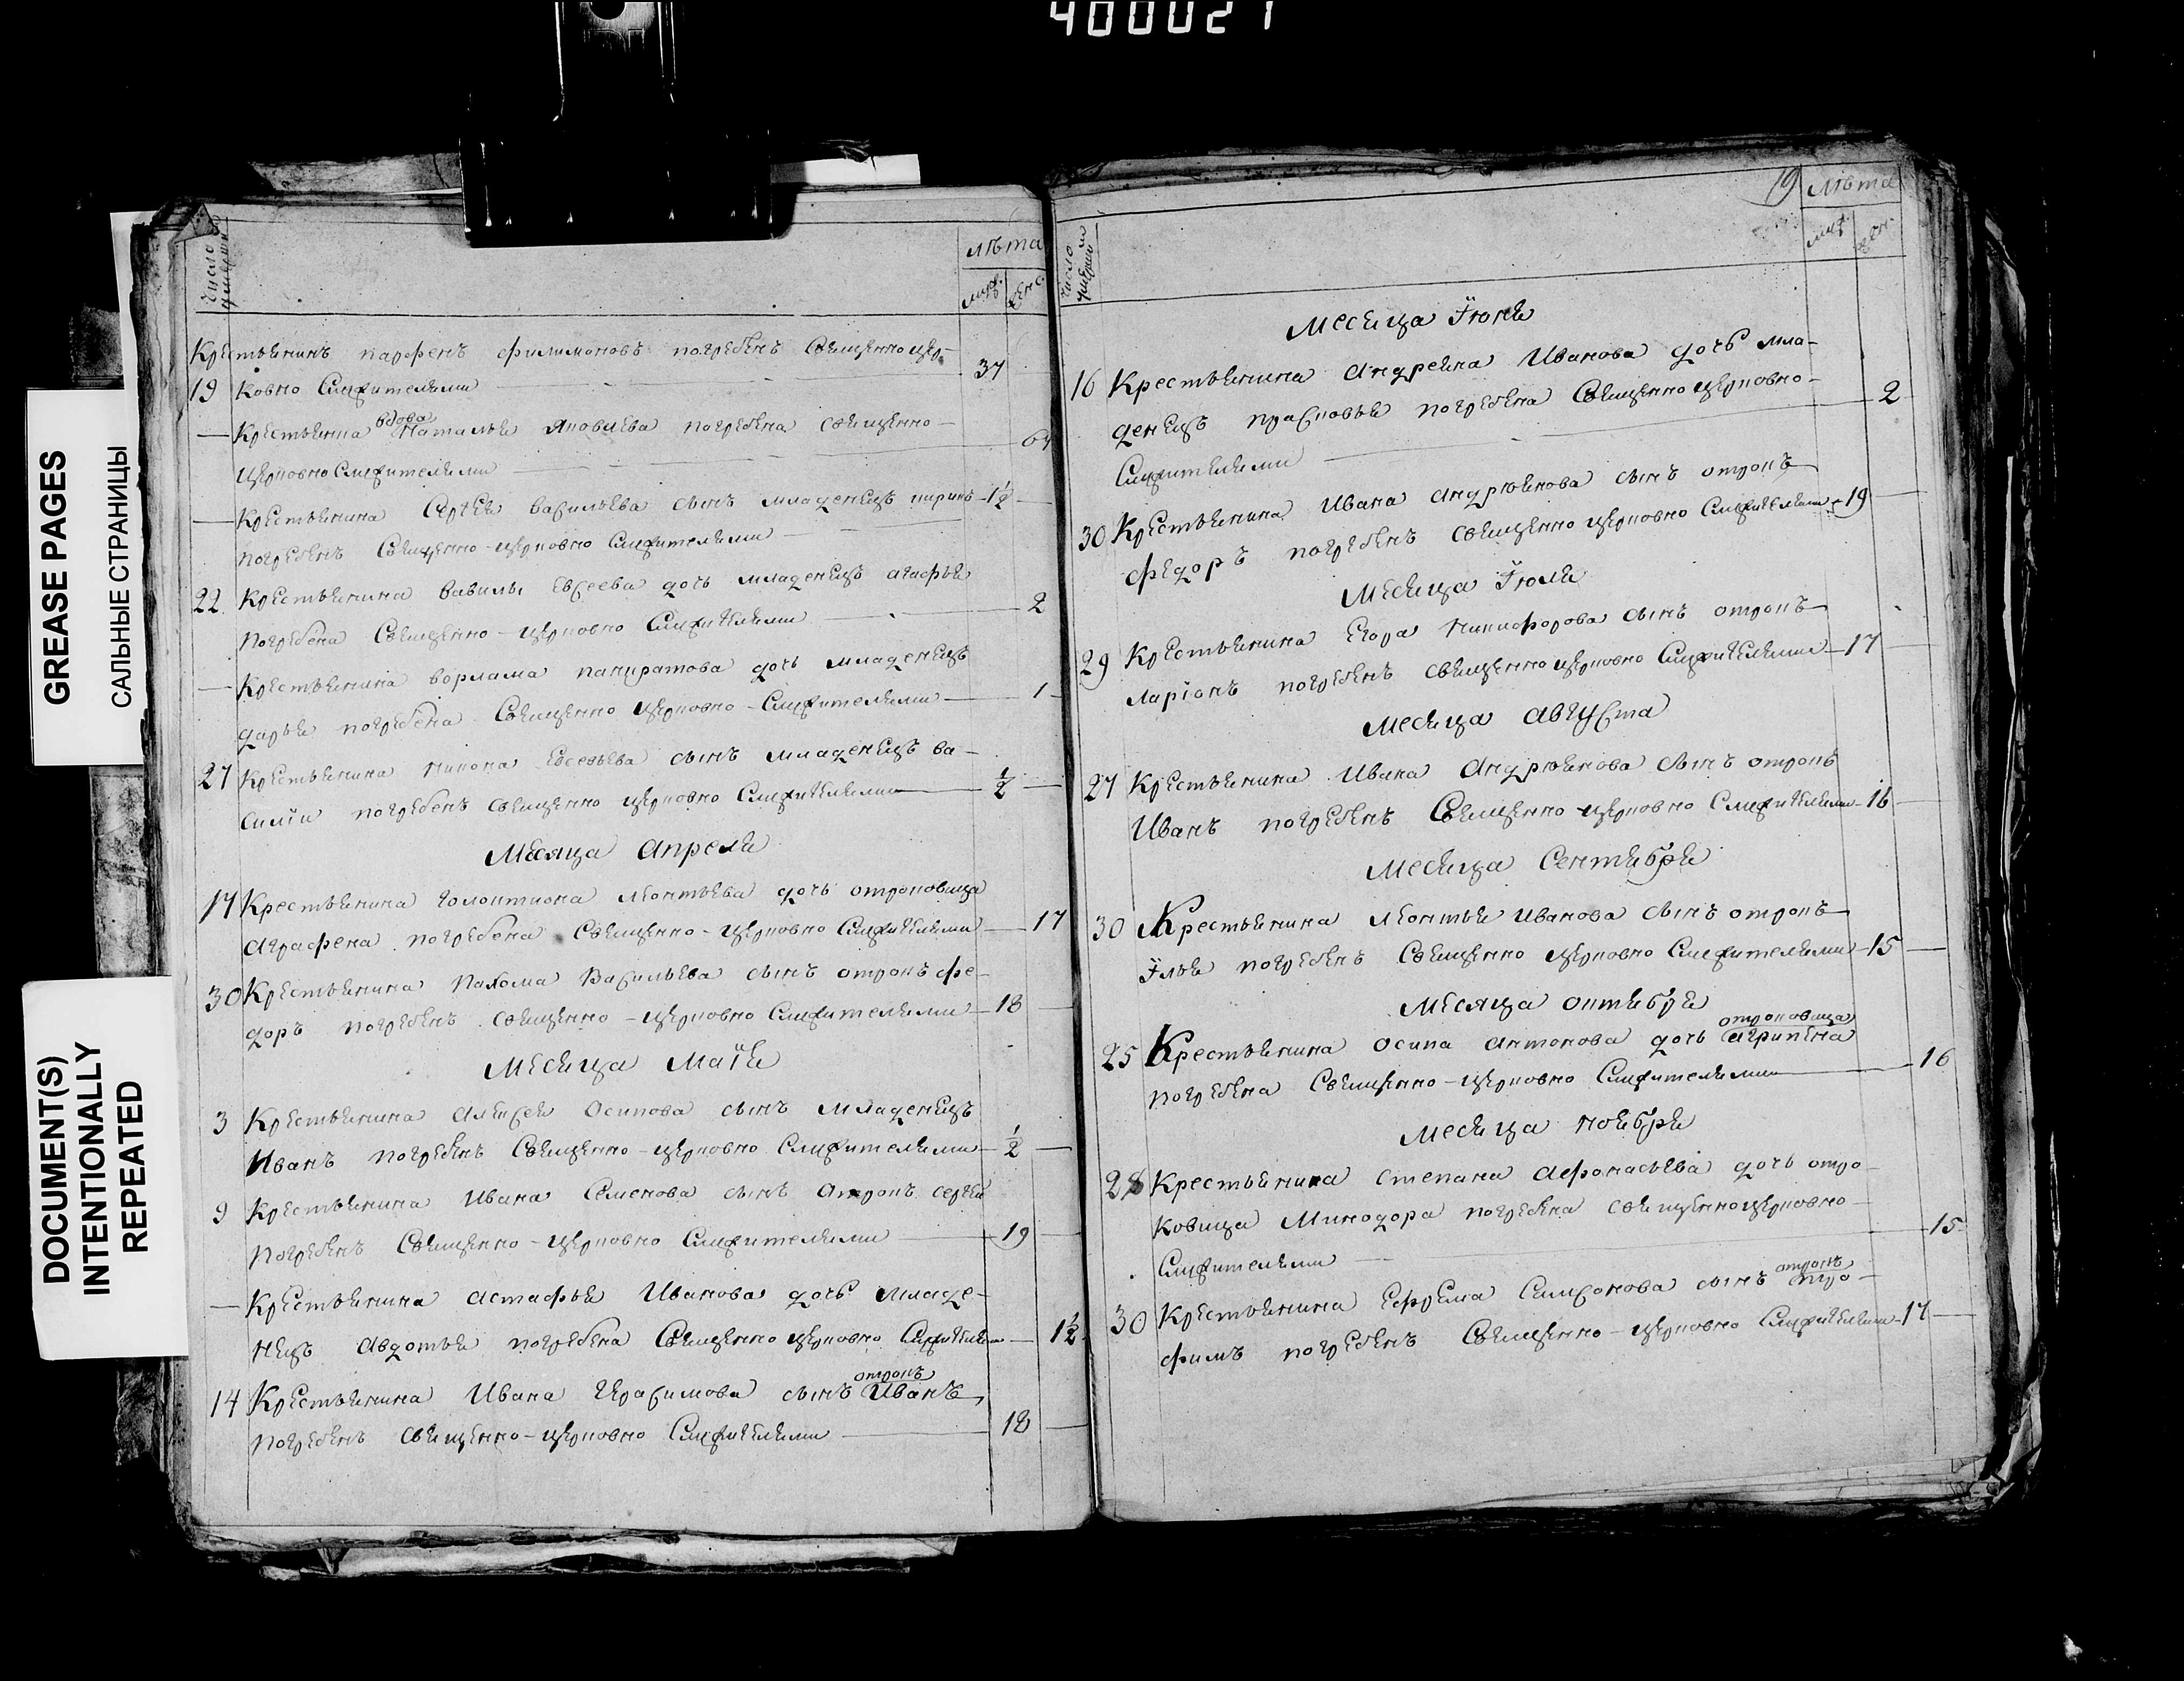 400027
GREASE PAGES
САЛЬНЫЕ СТРАНИЦЫ
DOCUMENT(S)
INTENTIONALLY
REPEATED
число
лѣта
муж. жен.
Крестьянинъ парфенъ филимоновъ погребенъ Священноцер-
19 ковно Служителями 37
— Крестьянина вдова Наталья Яковлева погребена священно-
церковно Служителями
— Крестьянина Сергея Васильева сынъ младенецъ кирикъ 1½
погребенъ Священно-церковно Служителями
22 Крестьянина вавилы Евсеева дочь младенецъ агафья
погребена Священно-церковно Служителями 2
— Крестьянина ворлама панкратова дочь младенецъ
дарья погребена Священно церковно-Служителями 1
27 Крестьянина никона Евсевьева сынъ младенецъ ва-
силiи погребенъ священно церковно Служителями ½
Месяца Апреля
17 Крестьянина голоктиона леонтьева дочь отроковица
аграфена погребена Священно-церковно Служителями 17
30 Крестьянина Пахома Васильева сынъ отрокъ фе-
доръ погребенъ священно-церковно Служителями 18
Месяца Маiя
3 Крестьянина алексея Осипова сынъ младенецъ
Иванъ погребенъ Священно-церковно Служителями ½
9 Крестьянина Ивана Семенова сынъ Отрокъ сергей
погребенъ Священно-церковно Служителями 19
— Крестьянина астафья Иванова дочь младе-
нецъ Авдотья погребена Священно церковно Служителями 1½
14 Крестьянина Ивана Герасимова сынъ отрокъ Иванъ
погребенъ священно-церковно Служителями 18
19
лѣта
число
муж. жен.
Месяца Iюня
16 Крестьянина Андреяна Иванова дочь мла-
денецъ прасковья погребена Священно церковно-
Служителями 2
30 Крестьянина Ивана андрюянова сынъ отрокъ
федоръ погребенъ священно церковно Служителями 19
Месяца Iюля
29 Крестьянина Егора никифорова сынъ отрокъ
ларiонъ погребенъ священно церковно Служителями 17
Месяца августа
27 Крестьянина Ивана Андрюянова Сынъ отрокъ
Иванъ погребенъ Священно-церковно Служителями 16
Месяца Сентября
30 Крестьянина леонтья Иванова сынъ отрокъ
Iлья погребенъ Священно церковно Служителями 15
Месяца октября
25 Крестьянина осипа антонова дочь отроковица агрипена
погребена Священно-церковно Служителями 16
Месяца ноября
28 Крестьянина степана афонасьева дочь отро-
ковица Минодора погребена священноцерковно-
Служителями 15
30 Крестьянина Ефрема Самсонова сынъ отрокъ тро-
фимъ погребенъ Священно-церковно Служителями 17